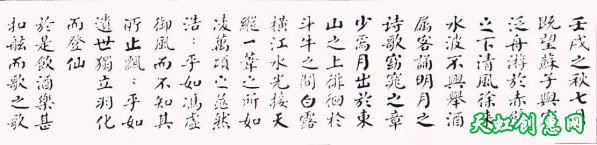 壬戌之秋七月
既望蘇子與
泛舟游於赤壁
之下清風徐來
水波不興舉酒
屬客誦明月之
詩歌窈窕之章
少焉月出於東
山之上徘徊於
斗牛之間白露
橫江水光接天
縱一葦之所如
凌萬頃之茫然
浩:乎如馮虛
御風而不知其
所止飄:乎如
遺世獨立羽化
而登仙
於是飲酒樂甚
扣舷而歌之歌
天虹创意网